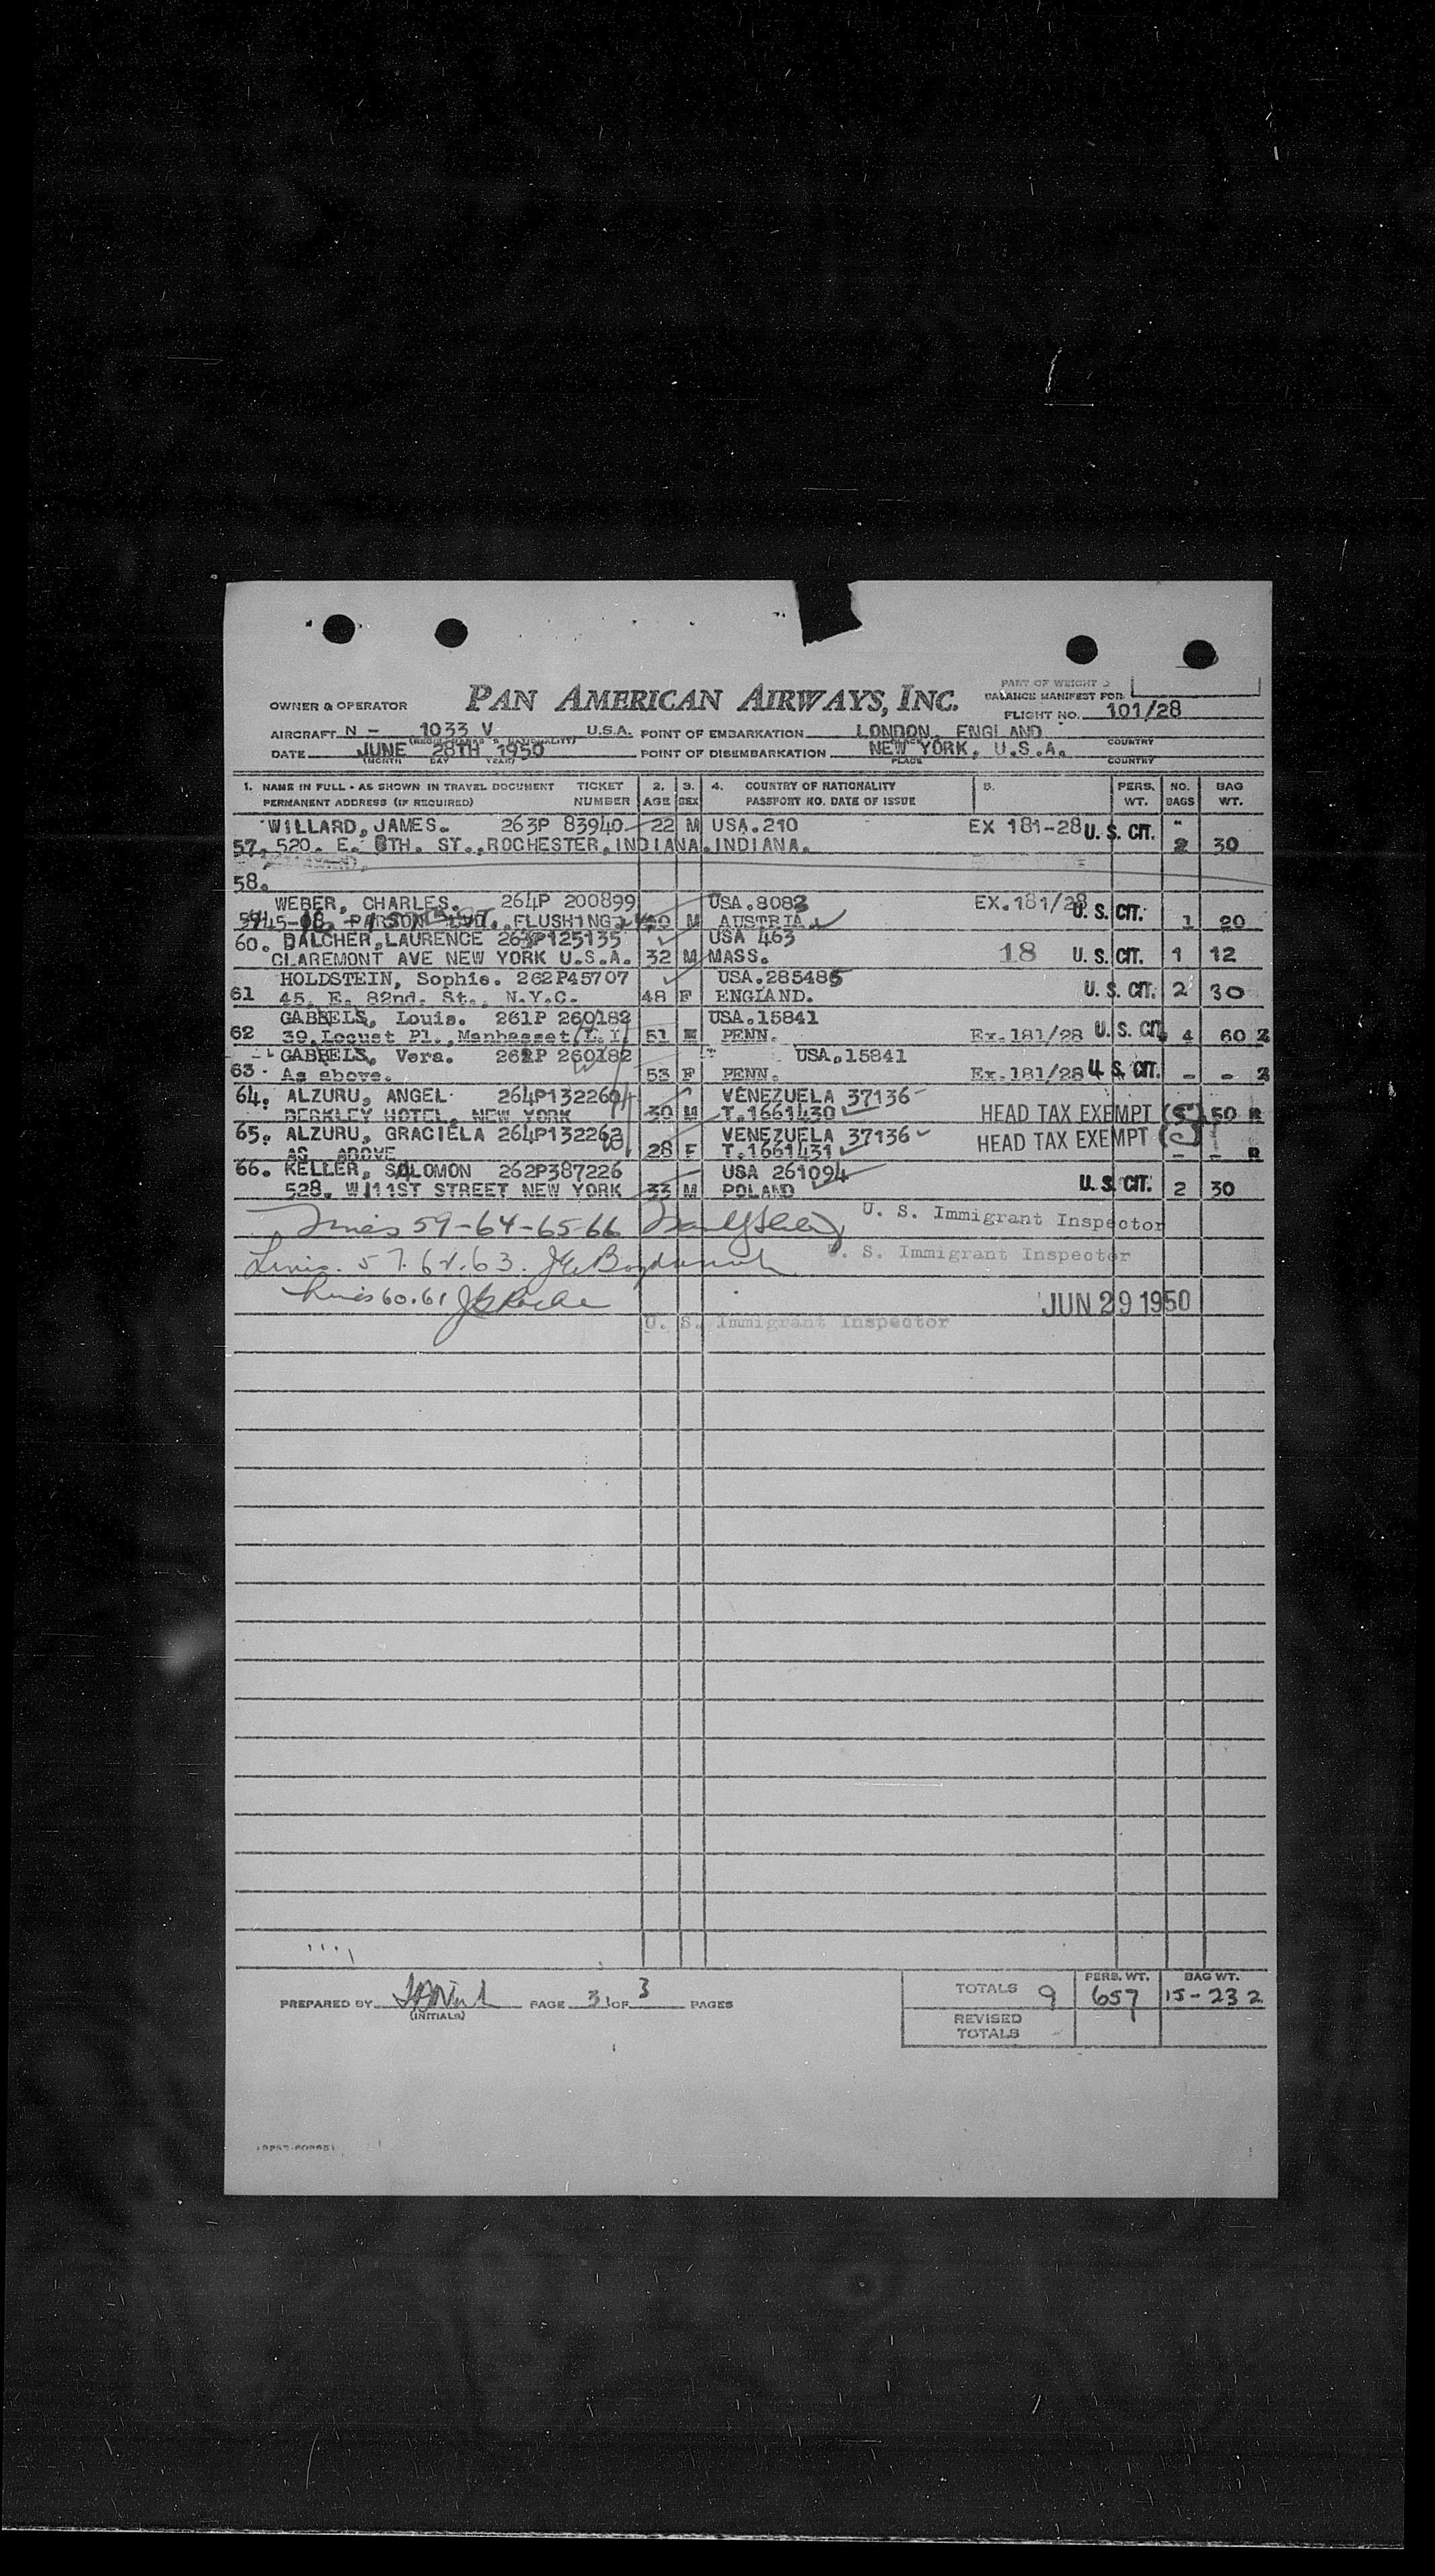 PART OF WEIGHT &
BALANCE MANIFEST FOR
OWNER & OPERATOR PAN AMERICAN AIRWAYS, INC.
FLIGHT NO. 101/28
AIRCRAFT N - 1033 V U.S.A. POINT OF EMBARKATION LONDON, ENGLAND
COUNTRY
DATE JUNE 28TH 1950 POINT OF DISEMBARKATION NEW YORK, U.S.A.
(MONTH DAY YEAR) PLACE COUNTRY
1. NAME IN FULL - AS SHOWN IN TRAVEL DOCUMENT TICKET 2. 3. 4. COUNTRY OF NATIONALITY 5. PERS. NO. BAG
PERMANENT ADDRESS (IF REQUIRED) NUMBER AGE SEX PASSPORT NO. DATE OF ISSUE WT. BAGS WT.
WILLARD, JAMES. 263P 83940 22 M USA.210 EX 181-28 U. S. CIT.
57. 520. E. 8TH. ST., ROCHESTER, INDIANA. INDIANA. 2 30
58.
WEBER, CHARLES. 264P 200899 USA.8083 EX.181/28 U. S. CIT.
FLUSHING M AUSTRIA 1 20
60. DALCHER, LAURENCE 263P125135 USA 463
CLAREMONT AVE NEW YORK U.S.A. 32 M MASS. 18 U. S. CIT. 1 12
HOLDSTEIN, Sophie. 262P45707 USA.285485
61 45. E. 82nd. St., N.Y.C. 48 F ENGLAND. U. S. CIT. 2 30
GABRELS, Louis. 261P 260182 USA.15841
62 39, Locust Pl., Manhasset, L. I. 51 M PENN. Ex.181/28 U. S. CIT. 4 60 Z
GABRELS, Vera. 262P 260182 USA.15841
63. As above. 53 F PENN. Ex.181/28 U. S. CIT. - - Z
64. ALZURU, ANGEL 264P132264 VENEZUELA 37136
BERKLEY HOTEL, NEW YORK 30 M T.1661430 HEAD TAX EXEMPT (5) 50 R
65. ALZURU, GRACIELA 264P132263 VENEZUELA 37136
AS ABOVE 28 F T.1661431 HEAD TAX EXEMPT - - R
66. KELLER, SOLOMON 262P387226 USA 261094
528. W 111ST STREET NEW YORK 33 M POLAND U. S. CIT. 2 30
Lines 59-64-65-66 U. S. Immigrant Inspector
Lines. 57.62.63. U. S. Immigrant Inspector
Lines 60.61 JUN 29 1950
U. S. Immigrant Inspector
PREPARED BY PAGE 3 OF 3 PAGES
(INITIALS)
PERS. WT. BAG WT.
TOTALS 9 657 15-232
REVISED
TOTALS